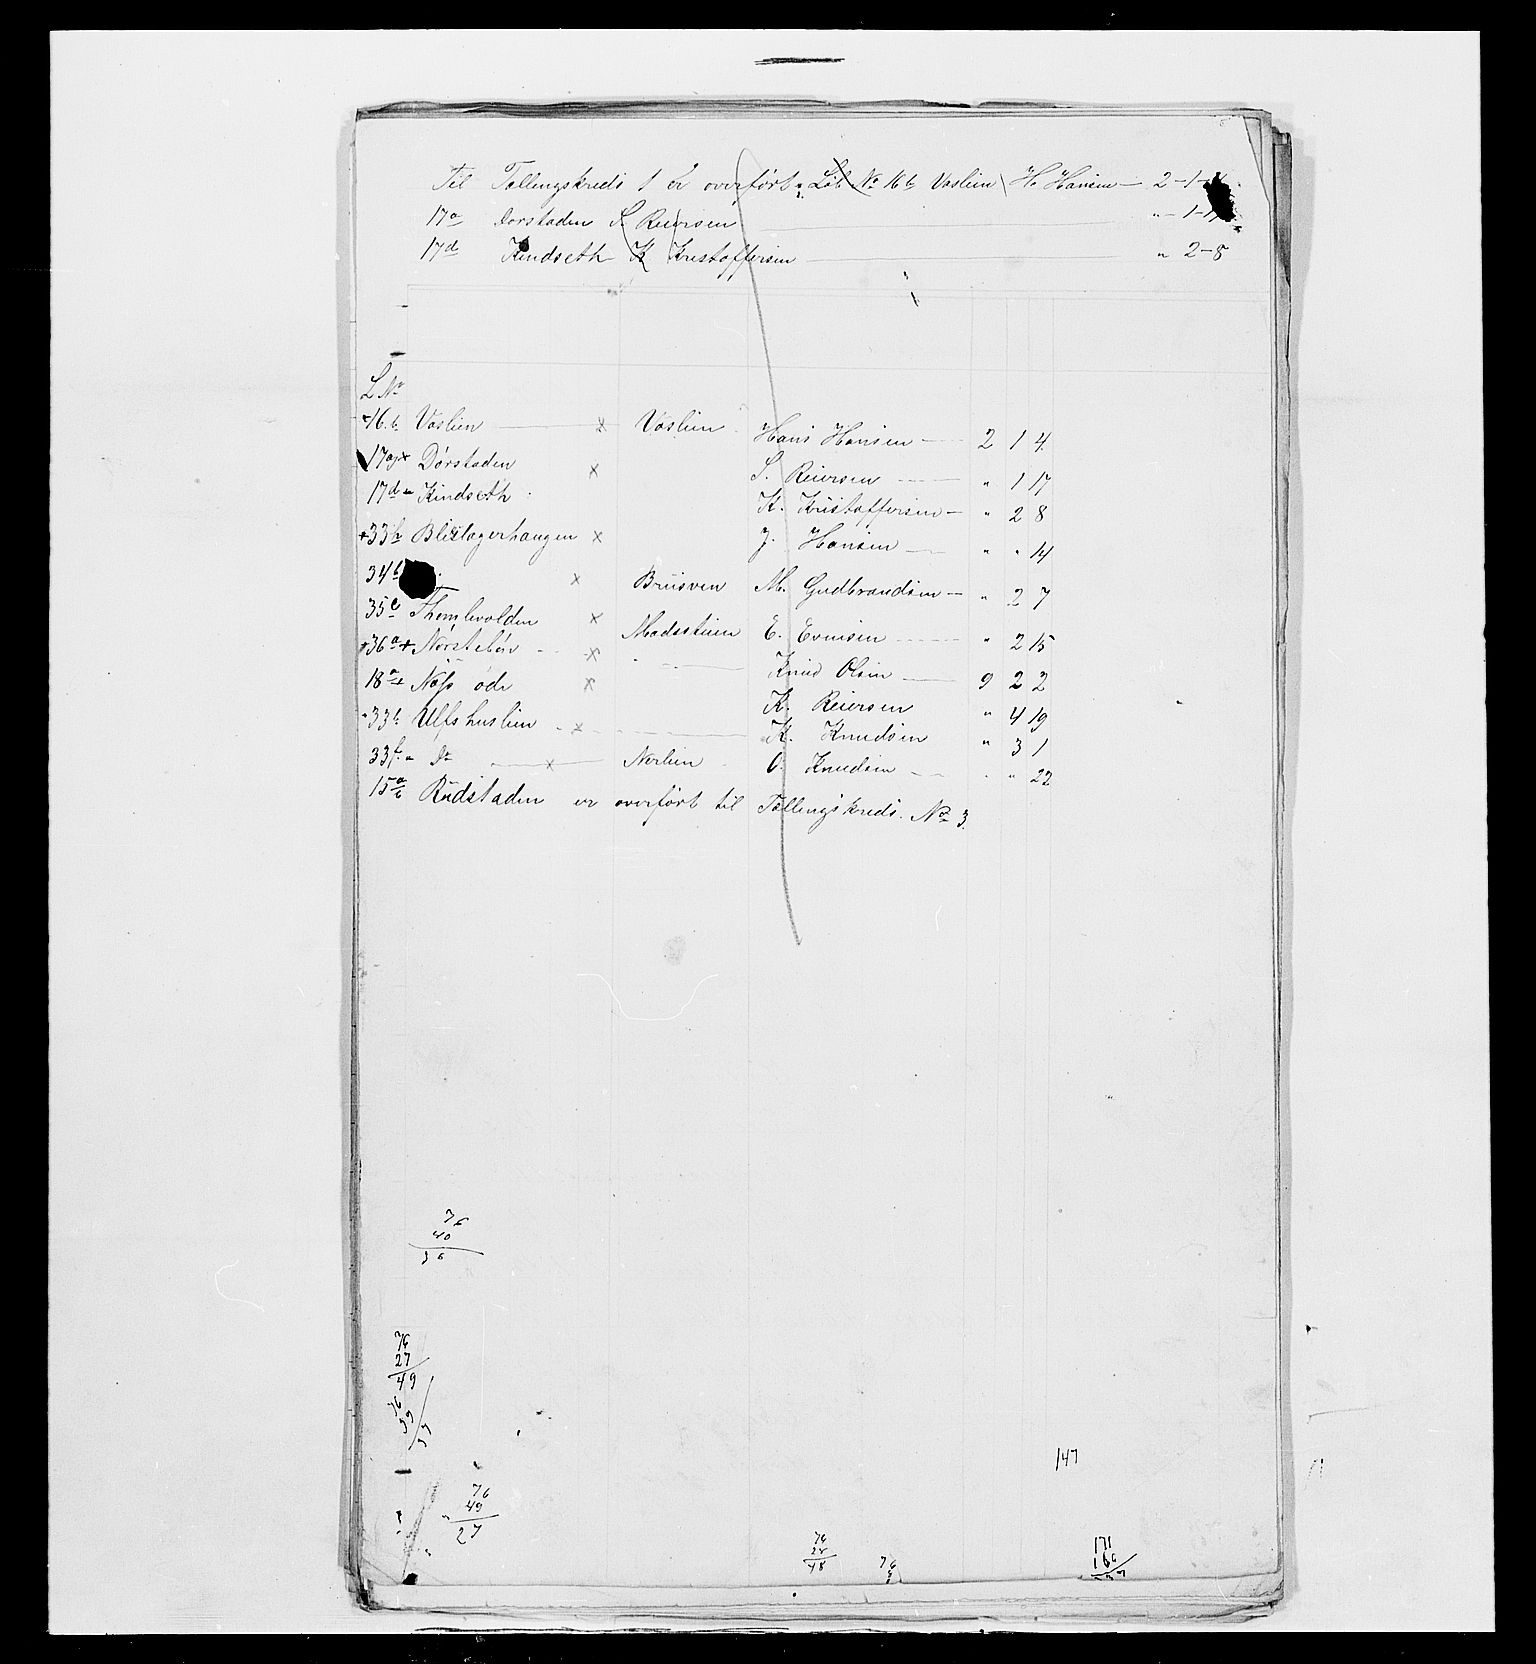 Til Tællingskreds 1 er overført: Löb No 16 b Vaslien H. Hansen — 2-1-
17a Dorstaden S. Reiersen — " - 1-17
17d Kindseth K Kristoffersen — " 2-8
L No
16.b Vaslien — x Vaslien Hans Hansen — 2 1 4
17a x Dörstaden x S. Reiersen — " 1 17
17d Kindseth K. Kristoffersen — " 2 8
33b x J. Hansen — " " 14
34b x Brüsven M. Gudbrandsen — " 2 7
35 x Madsstuen E. Evensen — " 2 15
36a + x " — Knud Olsen — 9 2 2
18a x K. Reiersen " 4 19
33b Ulfshuslien x — K. Knudsen " 3 1
33f. " Do — x — Nerlien O. Knudsen — " " 22
15 a b Rudstaden er overført til Tællingskreds No 3.
76
40
36
76
27
49
76
39
37
147
76
49
27
76
28
48
76
171